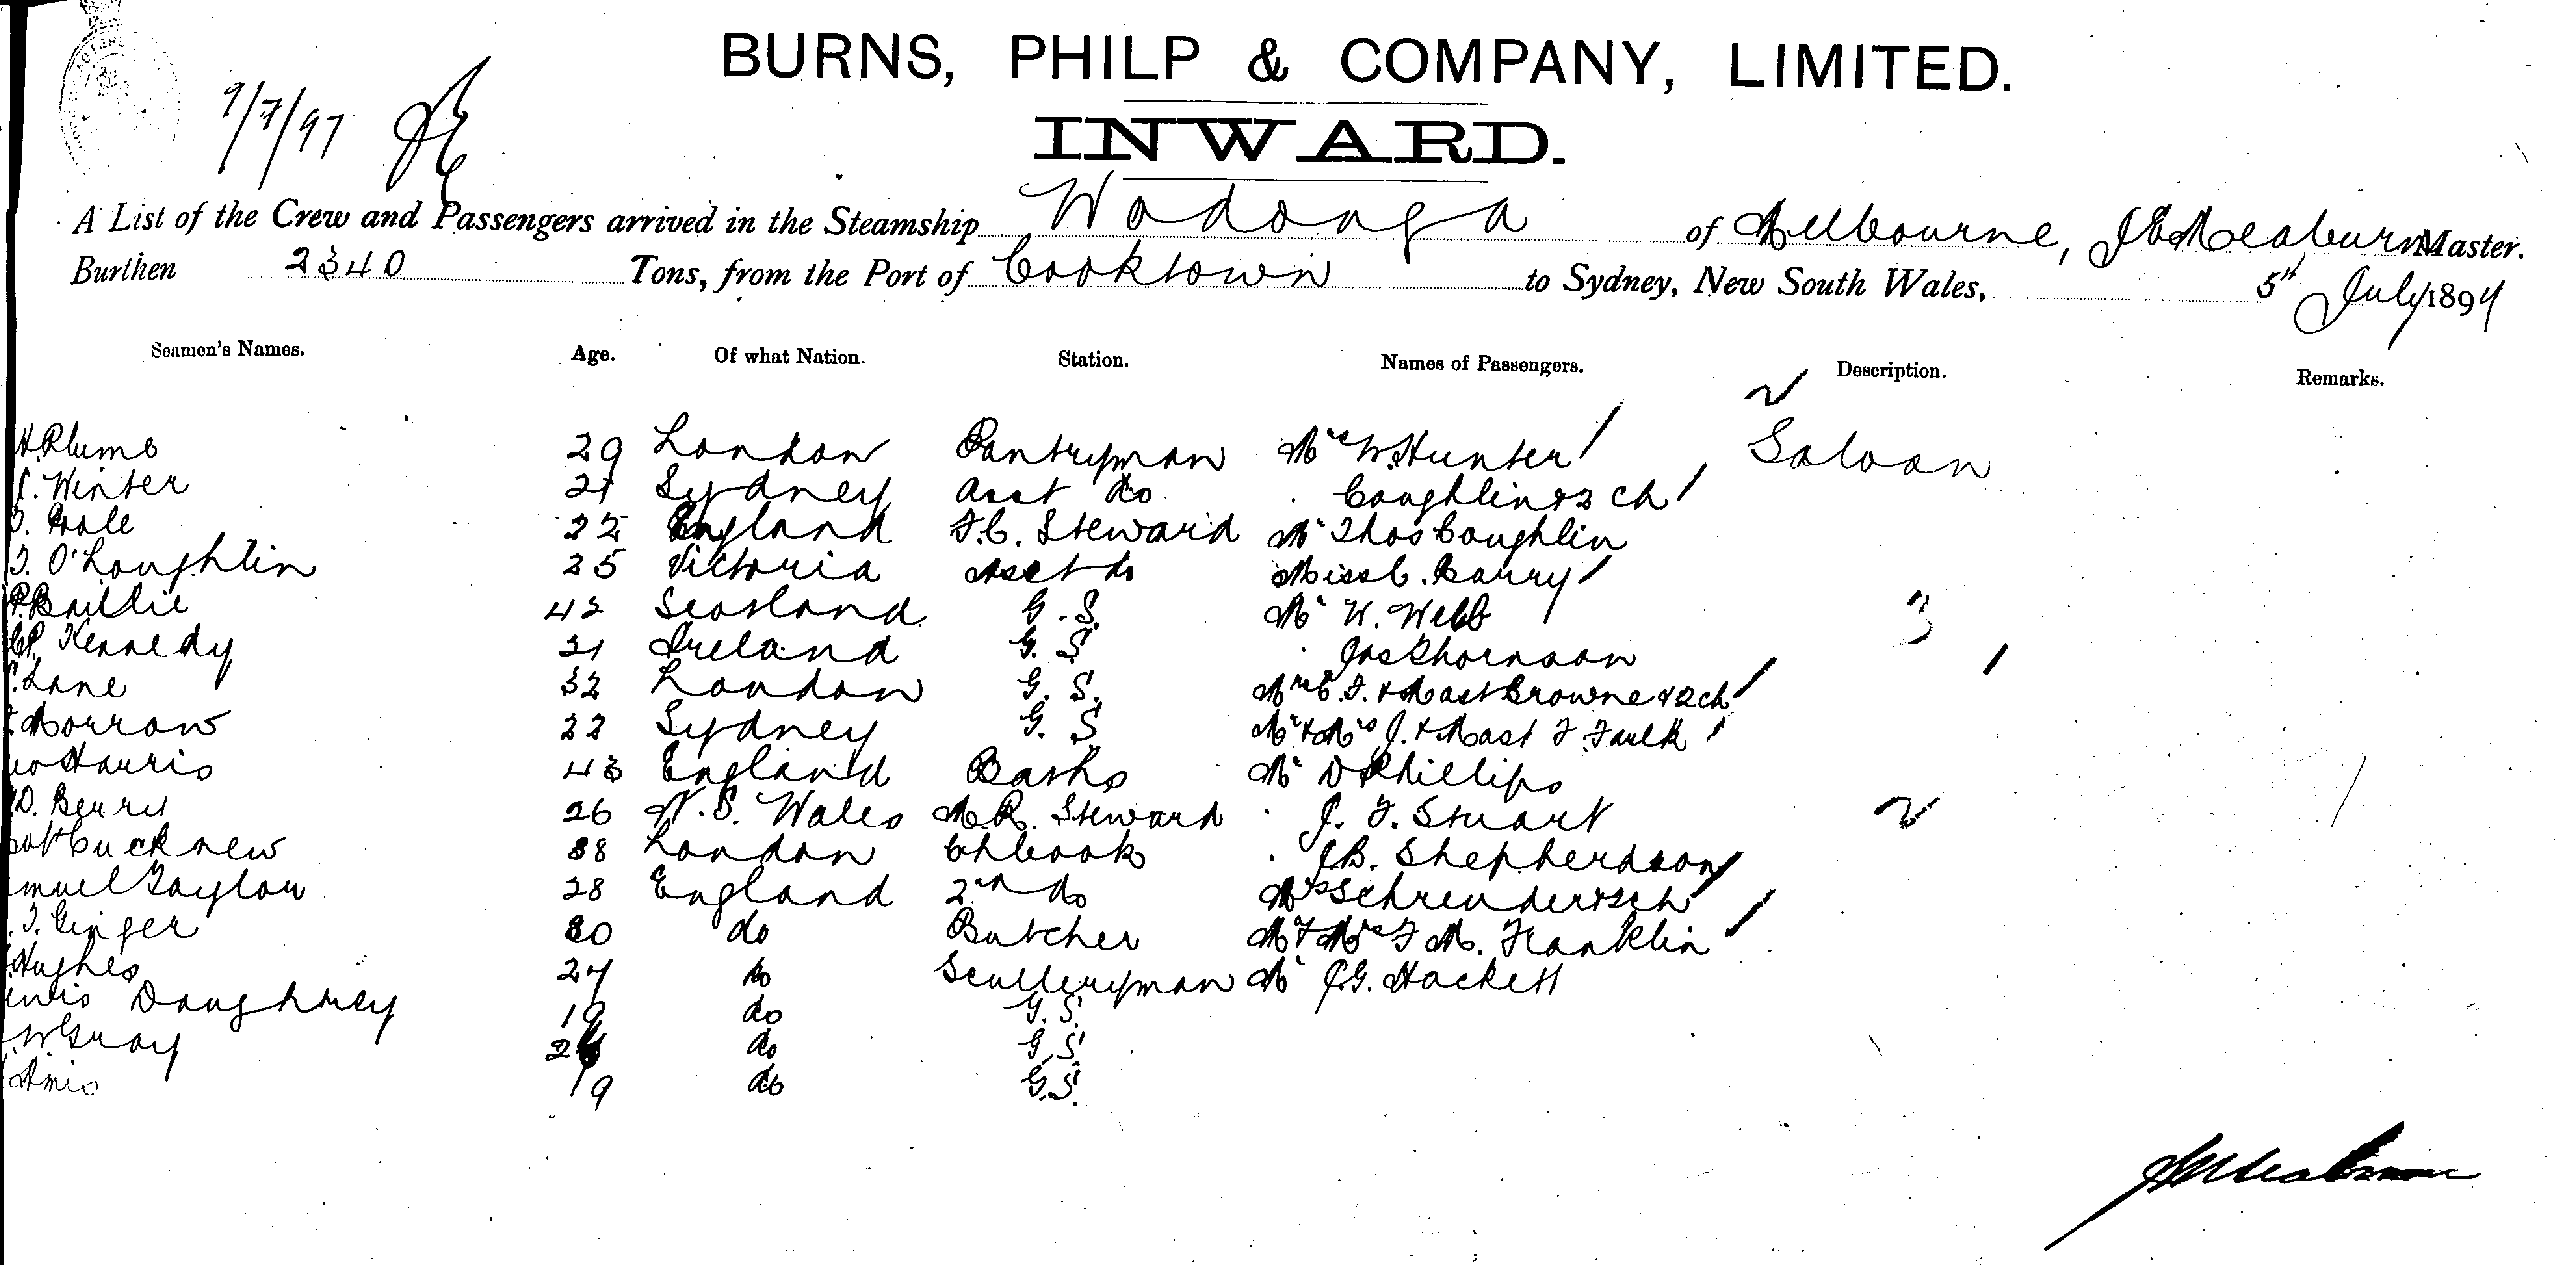 BURNS, PHILP & COMPANY, LIMITED.
9/7/97
INWARD.
A List of the Crew and Passengers arrived in the Steamship Wodonga of Melbourne, Meaburn Master.
Burthen 2340 Tons, from the Port of Cooktown to Sydney, New South Wales, 5th July 1897
Seamen's Names. Age. Of what Nation. Station. Names of Passengers. Description. Remarks.
Plumb 29 London Pantryman Mrs W. Hunter Saloon
Winter 21 Sydney Asst do Coughlin & 2 ch
22 England F.C. Steward Mr Thos Coughlin
O'Loughlin 25 Victoria Asst do Miss C. Barry
Baillie 42 Scotland G.S. Mr W. Webb 3
Kennedy 21 Ireland G.S Jas
Lane 32 London G.S. Mrs & Mast Browne & 2 ch
Morrow 22 Sydney G.S Mr & Mrs J. & Mast F Faulk
Harris 43 England Baths Mr D Phillips
26 N.S. Wales M.R. Steward J. F. Stuart 2
38 London Ch Cook J.B. Shepherdson
Taylor 28 England 2nd do Mrs
Ginger 30 do Butcher Mr & Mrs F M. Franklin
Hughes 24 do Sculleryman Mr J.G. Hackett
19 do G.S.
W Gray do G.S.
Amis 19 do G.S.